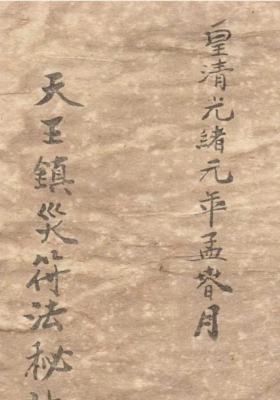 皇清光緒元年孟春月
天王鎮災符法秘